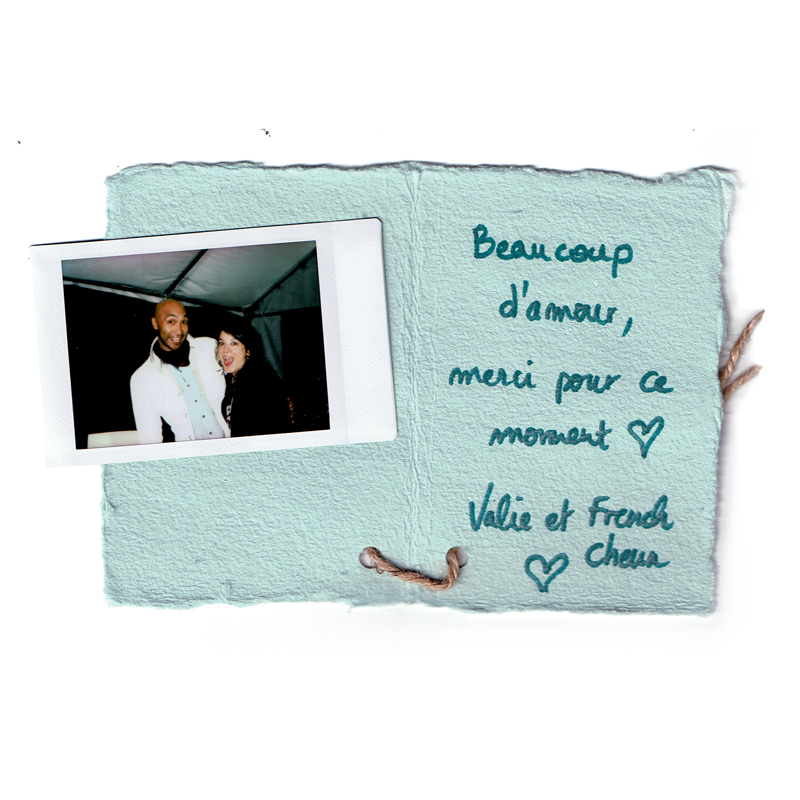 Beaucoup
d'amour,
merci pour ce
moment ♡
Valie et French
♡ Cheur